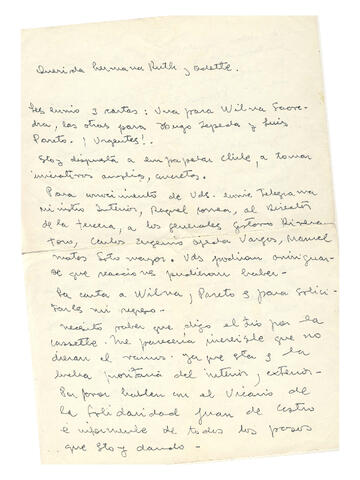 Querida hermana Ruth y Odette.
Les envio 3 cartas: Una para Wilna Saave-
dra, las otras para Hugo Zepeda y Luis
Pareto. ¡Urgentes!.
Estoy dispuesta a empapelar Chile, a tomar
iniciativas amplias, concretas.
Para conocimiento de Uds. envie Telegrama
ministro Interior, Raquel Correa, al Director
de la Tercera, a los generales Gustavo Rivera
Toro, Carlos Eugenio Ojeda Vargas, Manuel
Matas Sotomayor. Uds podrian averiguar
que reacciones pudieran haber-
La carta a Wilna, Pareto es para solici-
tarles mi regreso-
necesito saber que dijo el Tio por la
cassette. Me pareceria increible que no
dieran el ramus. ya que esta es la
lucha del interior y exterior-
Por favor hablen con el Vicario de
la Solidaridad Juan de Castro
e informenle de todos los pasos
que estoy dando-